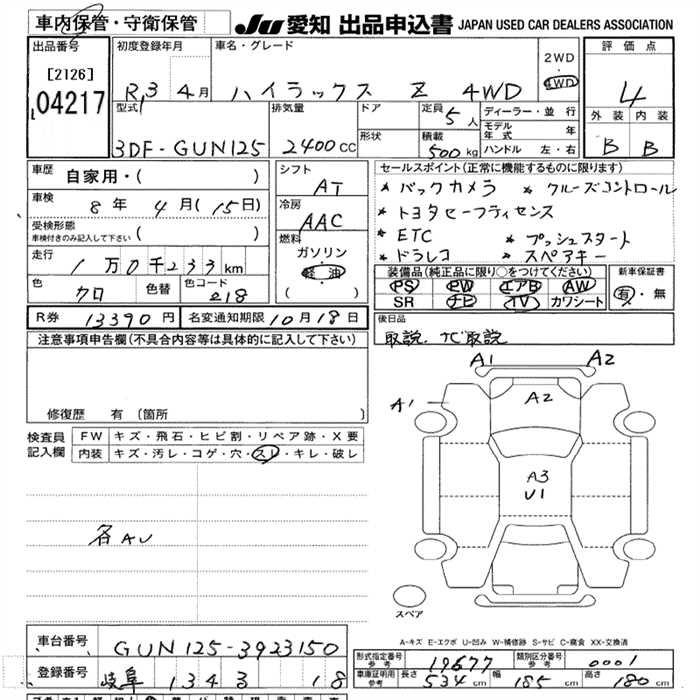 車内保管・守衛保管
JU 愛知 出品申込書 JAPAN USED CAR DEALERS ASSOCIATION
出品番号
[2126]
04217
初度登録年月
R3 4月
車名・グレード
ハイラックス Z 4WD
2WD
4WD
評価点
4
外装 内装
B B
型式
3DF-GUN125
排気量
2400cc
ドア
形状
定員 5人
積載 500kg
ディーラー・並行
モデル年式 年
ハンドル 左・右
車歴 自家用・( )
車検 8年 4月(15日)
受検形態
車検付きのみ記入して下さい ( )
走行 1万0千233km
色 クロ 色替
色コード 218
シフト AT
冷房 AAC
燃料
ガソリン
軽油
( )
セールスポイント(正常に機能するものに限ります)
* バックカメラ * クルーズコントロール
* トヨタセーフティセンス
* ETC * プッシュスタート
* ドラレコ * スペアキー
装備品(純正品に限り○をつけてください)
PS PW エアB AW
SR ナビ TV カワシート
新車保証書
有・無
R券 13390円 名変通知期限 10月18日
後日品
取説、ナビ取説
注意事項申告欄(不具合内容等は具体的に記入して下さい)
修復歴 有 〔箇所
検査員記入欄
FW キズ・飛石・ヒビ割・リペア跡・X要
内装 キズ・汚レ・コゲ・穴・スレ・キレ・破レ
各AU
A1 A2
A1 A2
A3
U1
スペア
A-キズ E-エクボ U-凹み W-補修跡 S-サビ C-腐食 XX-交換済
車台番号 GUN125-3923150
登録番号 岐阜 134 3 18
形式指定番号 参考 19677
類別区分番号 参考 0001
車庫証明用 参考 長さ 534cm 幅 185cm 高さ 180cm